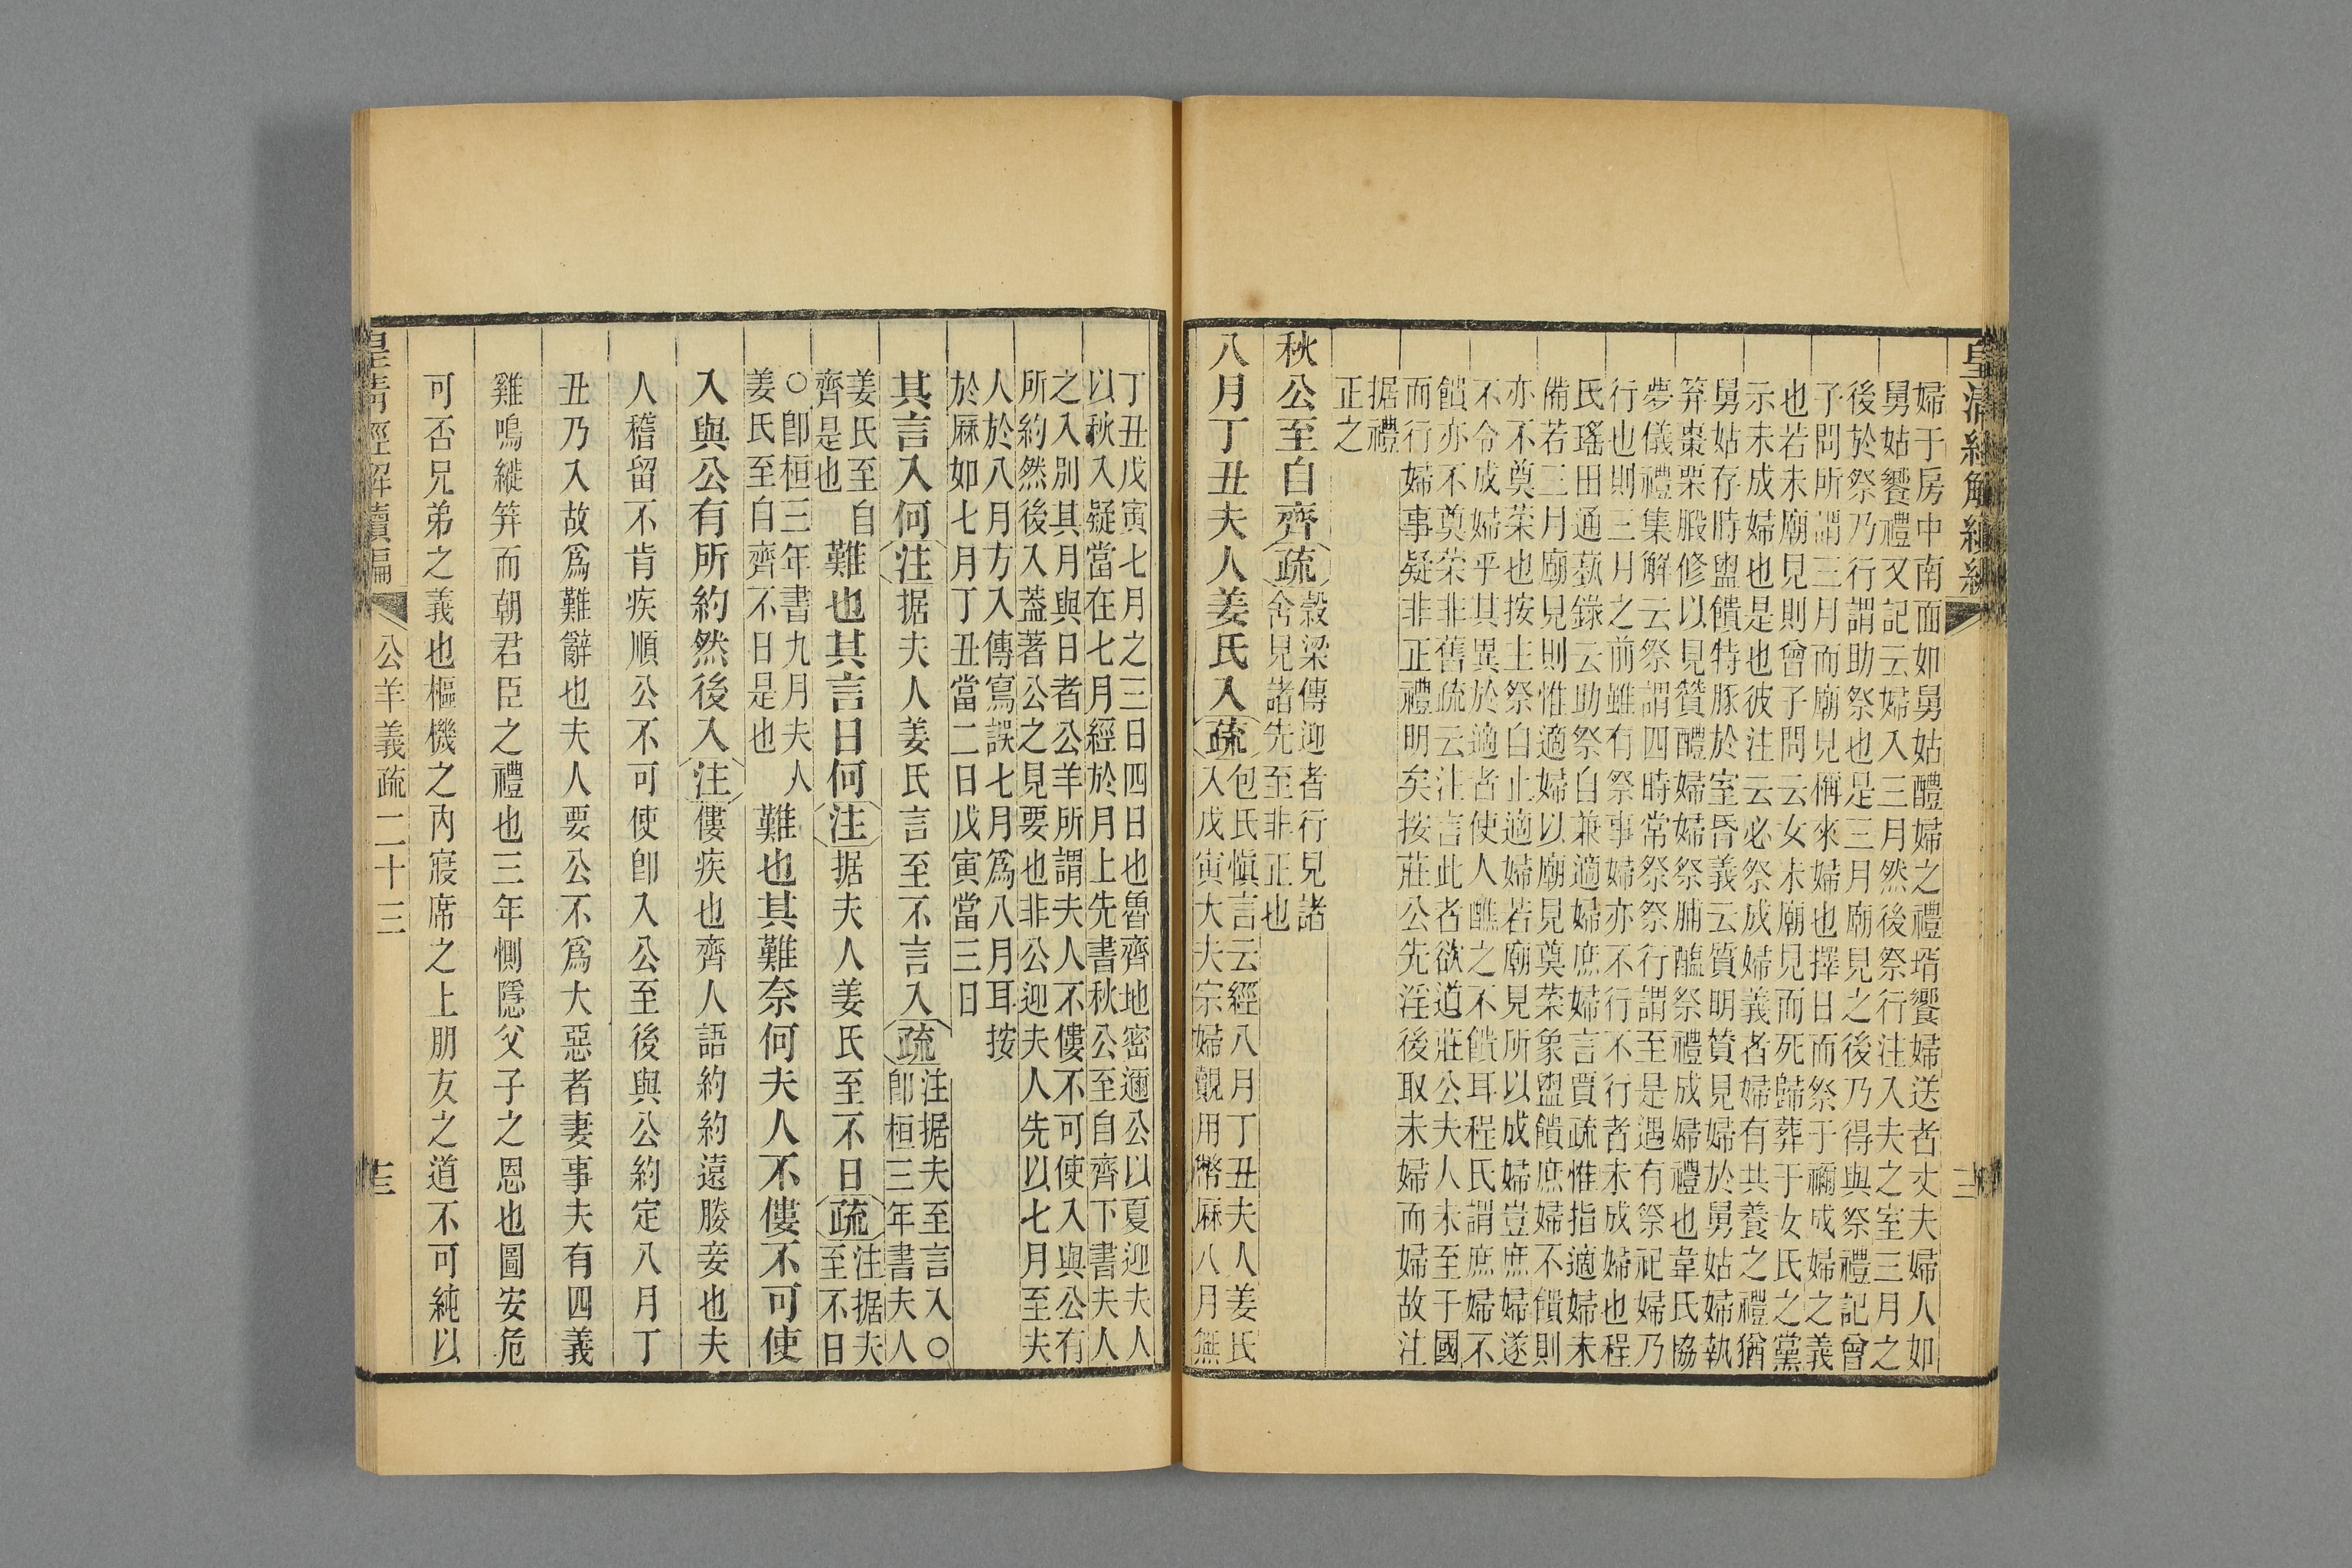 皇清經解續編
婦于房中南面如舅姑醴婦之禮壻饗婦送者丈夫婦人如
舅姑饗禮又記云婦入三月然後祭行注入夫之室三月之
後於祭乃行謂助祭也是三月廟見之後乃得與祭禮記曾
子問所謂三月而廟見稱來婦也擇日而祭于禰成婦之義
也若未廟見則曾子問云女未廟見而死歸葬于女氏之黨
示未成婦也是也彼注云必祭成婦義者婦有共養之禮猶
舅姑存時盥饋特豚於室昏義云質明贊見婦於舅姑婦執
笲棗栗腶修以見贊醴婦婦祭脯醢祭禮成婦禮也韋氏協
夢儀禮集解云祭謂四時常祭祭行謂至是遇有祭祀婦乃
行也則三月之前雖有祭事婦亦不行不行者未成婦也程
氏瑤田通蓺錄云助祭自兼適婦庶婦言賈疏惟指適婦未
備若三月廟見則惟適婦以廟見奠菜象盥饋庶婦不饋則
亦不奠菜也按主祭自止適婦若廟見所以成婦豈庶婦遂
不令成婦乎其異於適者使人醮之不饋耳程氏謂庶婦不
饋亦不奠菜非舊疏云注言此者欲道莊公夫人未至于國
而行婦事疑非正禮明矣按莊公先淫後取未婦而婦故注
据禮
正之
秋公至自齊疏穀梁傳迎者行見諸
舍見諸先至非正也
八月丁丑夫人姜氏入疏包氏慎言云經八月丁丑夫人姜氏
入戊寅大夫宗婦覿用幣厤八月無
丁丑戊寅七月之三日四日也魯齊地密邇公以夏迎夫人
以秋入疑當在七月經於月上先書秋公至自齊下書夫人
之入別其月與日者公羊所謂夫人不僂不可使入與公有
所約然後入蓋著公之見要也非公迎夫人先以七月至夫
人於八月方入傳寫誤七月爲八月耳按
於厤如七月丁丑當二日戊寅當三日
其言入何注据夫人姜氏言至不言入疏注据夫至言入○
卽桓三年書夫人
姜氏至自
齊是也
難也其言日何注据夫人姜氏至不日疏注据夫
至不日
○卽桓三年書九月夫人
姜氏至自齊不日是也
難也其難奈何夫人不僂不可使
入與公有所約然後入注僂疾也齊人語約約遠媵妾也夫
人稽留不肯疾順公不可使卽入公至後與公約定八月丁
丑乃入故爲難辭也夫人要公不爲大惡者妻事夫有四義
雞鳴縰笄而朝君臣之禮也三年惻隱父子之恩也圖安危
可否兄弟之義也樞機之內寢席之上朋友之道不可純以
皇清經解續編
公羊義疏二十三